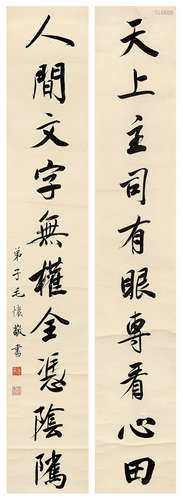 天上主司有眼專看心田
人間文字無權全憑陰隲
弟子毛懷敬書